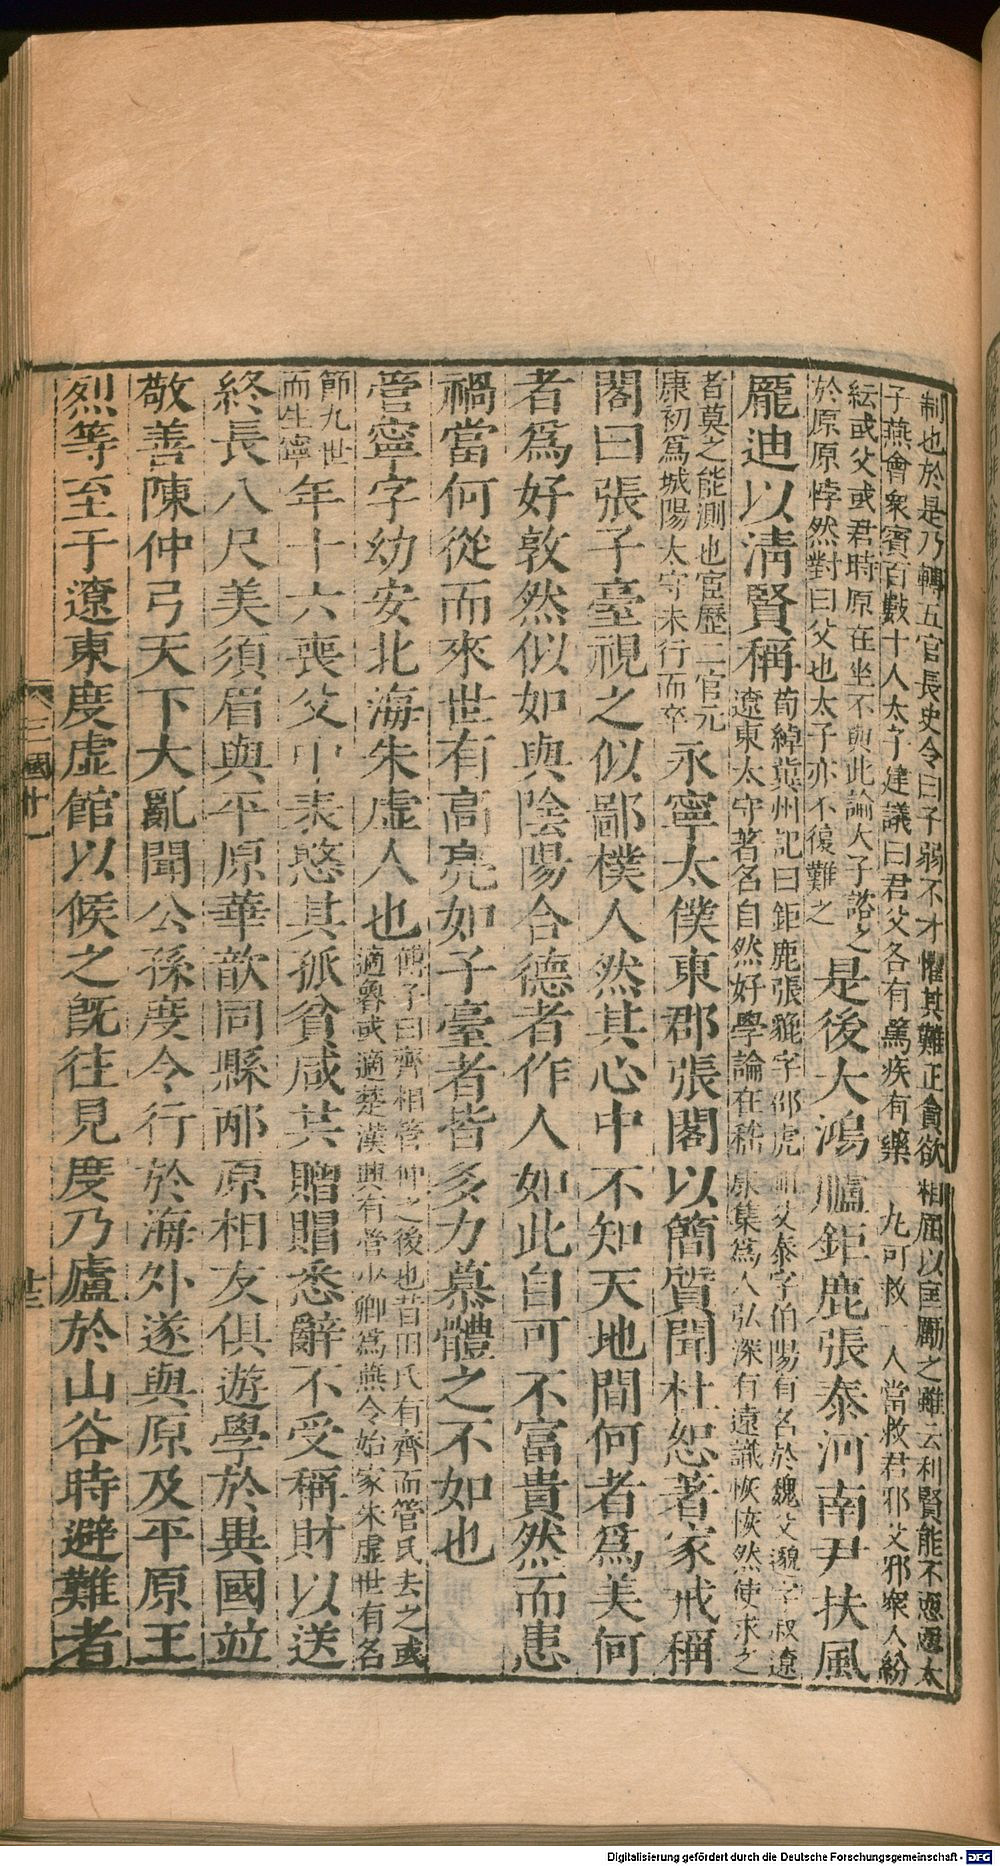 制也於是乃轉五官長史令曰子弱不才懼其難正貪欲相屈以匡勵之雖云利賢能不恧恧太
子燕會衆賓百數十人太子建議曰君父各有篤疾有藥一丸可救一人當救君邪父邪衆人紛
紜或父或君時原在坐不與此論太子諮之
於原原悖然對曰父也太子亦不復難之
是後大鴻臚鉅鹿張泰河南尹扶風
龐迪以淸賢稱
荀綽兾州記曰鉅鹿張貔字邵虎祖父泰字伯陽有名於魏父邈字叔遼
遼東太守著名自然好學論在嵇康集爲人弘深有遠識恢恢然使求之
者莫之能測也宦歷二官元
康初爲城陽太守未行而卒
永寧太僕東郡張閣以簡質聞杜恕著家戒稱
閣曰張子臺視之似鄙樸人然其心中不知天地間何者爲美何
者爲好敦然似如與陰陽合德者作人如此自可不富貴然而患
禍當何從而來世有高亮如子臺者皆多力慕體之不如也
管寧字幼安北海朱虛人也
傅子曰齊相管仲之後也昔田氏有齊而管氏去之或
適魯或適楚漢興有管少卿爲燕令始家朱虛世有名
節九世
而生寧
年十六喪父中表愍其孤貧咸共贈賵悉辭不受稱財以送
終長八尺美須眉與平原華歆同縣邴原相友俱遊學於異國竝
敬善陳仲弓天下大亂聞公孫度令行於海外遂與原及平原王
烈等至于遼東度虛館以候之旣往見度乃廬於山谷時避難者
三國十一
廿三
Digitalisierung gefördert durch die Deutsche Forschungsgemeinschaft - DFG